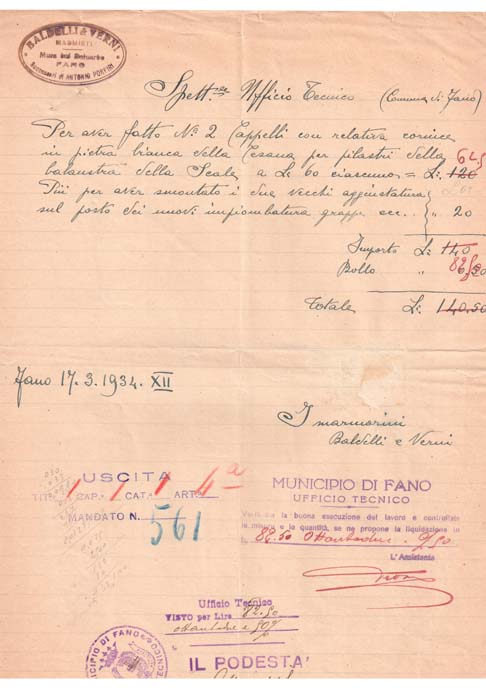 BALDELLI & VERNI
MARMISTI
FANO
Successori di ANTONIO PORFIRI
Spett.le Ufficio Tecnico (Comune di Fano)
Per aver fatto No 2 Cappelli con relativa cornice
in pietra bianca della Cesana per pilastri della 62,5
balaustra della Scale a Le 60 ciascuno = L: 120
Più per aver smontato i due vecchi aggiustatura
sul posto dei nuovi impiombatura grappe ecc.. " 20
Importo L: 140
Bollo " 0,50
82,50
Totale L: 140.50
Fano 17.3.1934. XII
I marmorini
Baldelli e Verni
USCITA
TIT. 1 CAP. 1 CAT. 1 ART. 4a
MANDATO N. 561
MUNICIPIO DI FANO
UFFICIO TECNICO
Verificata la buona esecuzione del lavoro e controllate
le misure e le quantità, se ne propone la liquidazione in
L. 82.50 Ottantadue 50
L'Assistente
Ufficio Tecnico
VISTO per Lire 82.50
ottantadue e 50%
MUNICIPIO DI FANO
IL PODESTA'